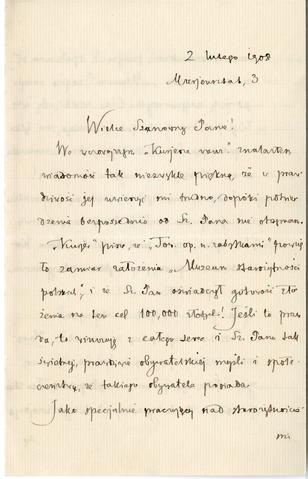 2 lutego 1908
3
Wielce Szanowny Panie!
We wczorajszym "Kurjerze warsz." znalazłem
wiadomość tak niezwykle piękną, że w praw-
dziwość jej uwierzyć mi trudno, dopóki potwier-
dzenia bezpośrednio od Sz. Pana nie otrzymam.
"Kurjer" pisze, że "Tow. op. n. zabytkami" powzięło
to zamiar założenia "Muzeum starożytności
polskich" i że Sz. Pan oświadczył gotowość zło-
żenia na ten cel 100,000 rubli! Jeśli to praw-
da, to winszuję z całego serca i Sz. Panu tak
świetnej, prawdziwie obywatelskiej myśli i społe-
czeństwu, że takiego obywatela posiada.
Jako specjalnie pracujący nad starożytnościa-
mi